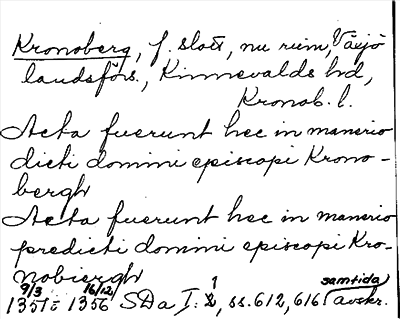 Kronoberg, f. slott, nu ruin, Växjö
landsförs., Kinnevalds hd,
Kronob. l.
Acta fuerunt hec in manerio
dicti domini episcopi Krono-
bergh
Acta fuerunt hec in manerio
predicti domini episcopi Kro-
nobiergh
9/3 16/12 1 samtida
1351 o 1356 SDa I: 2, ss. 612, 616 (avskr.